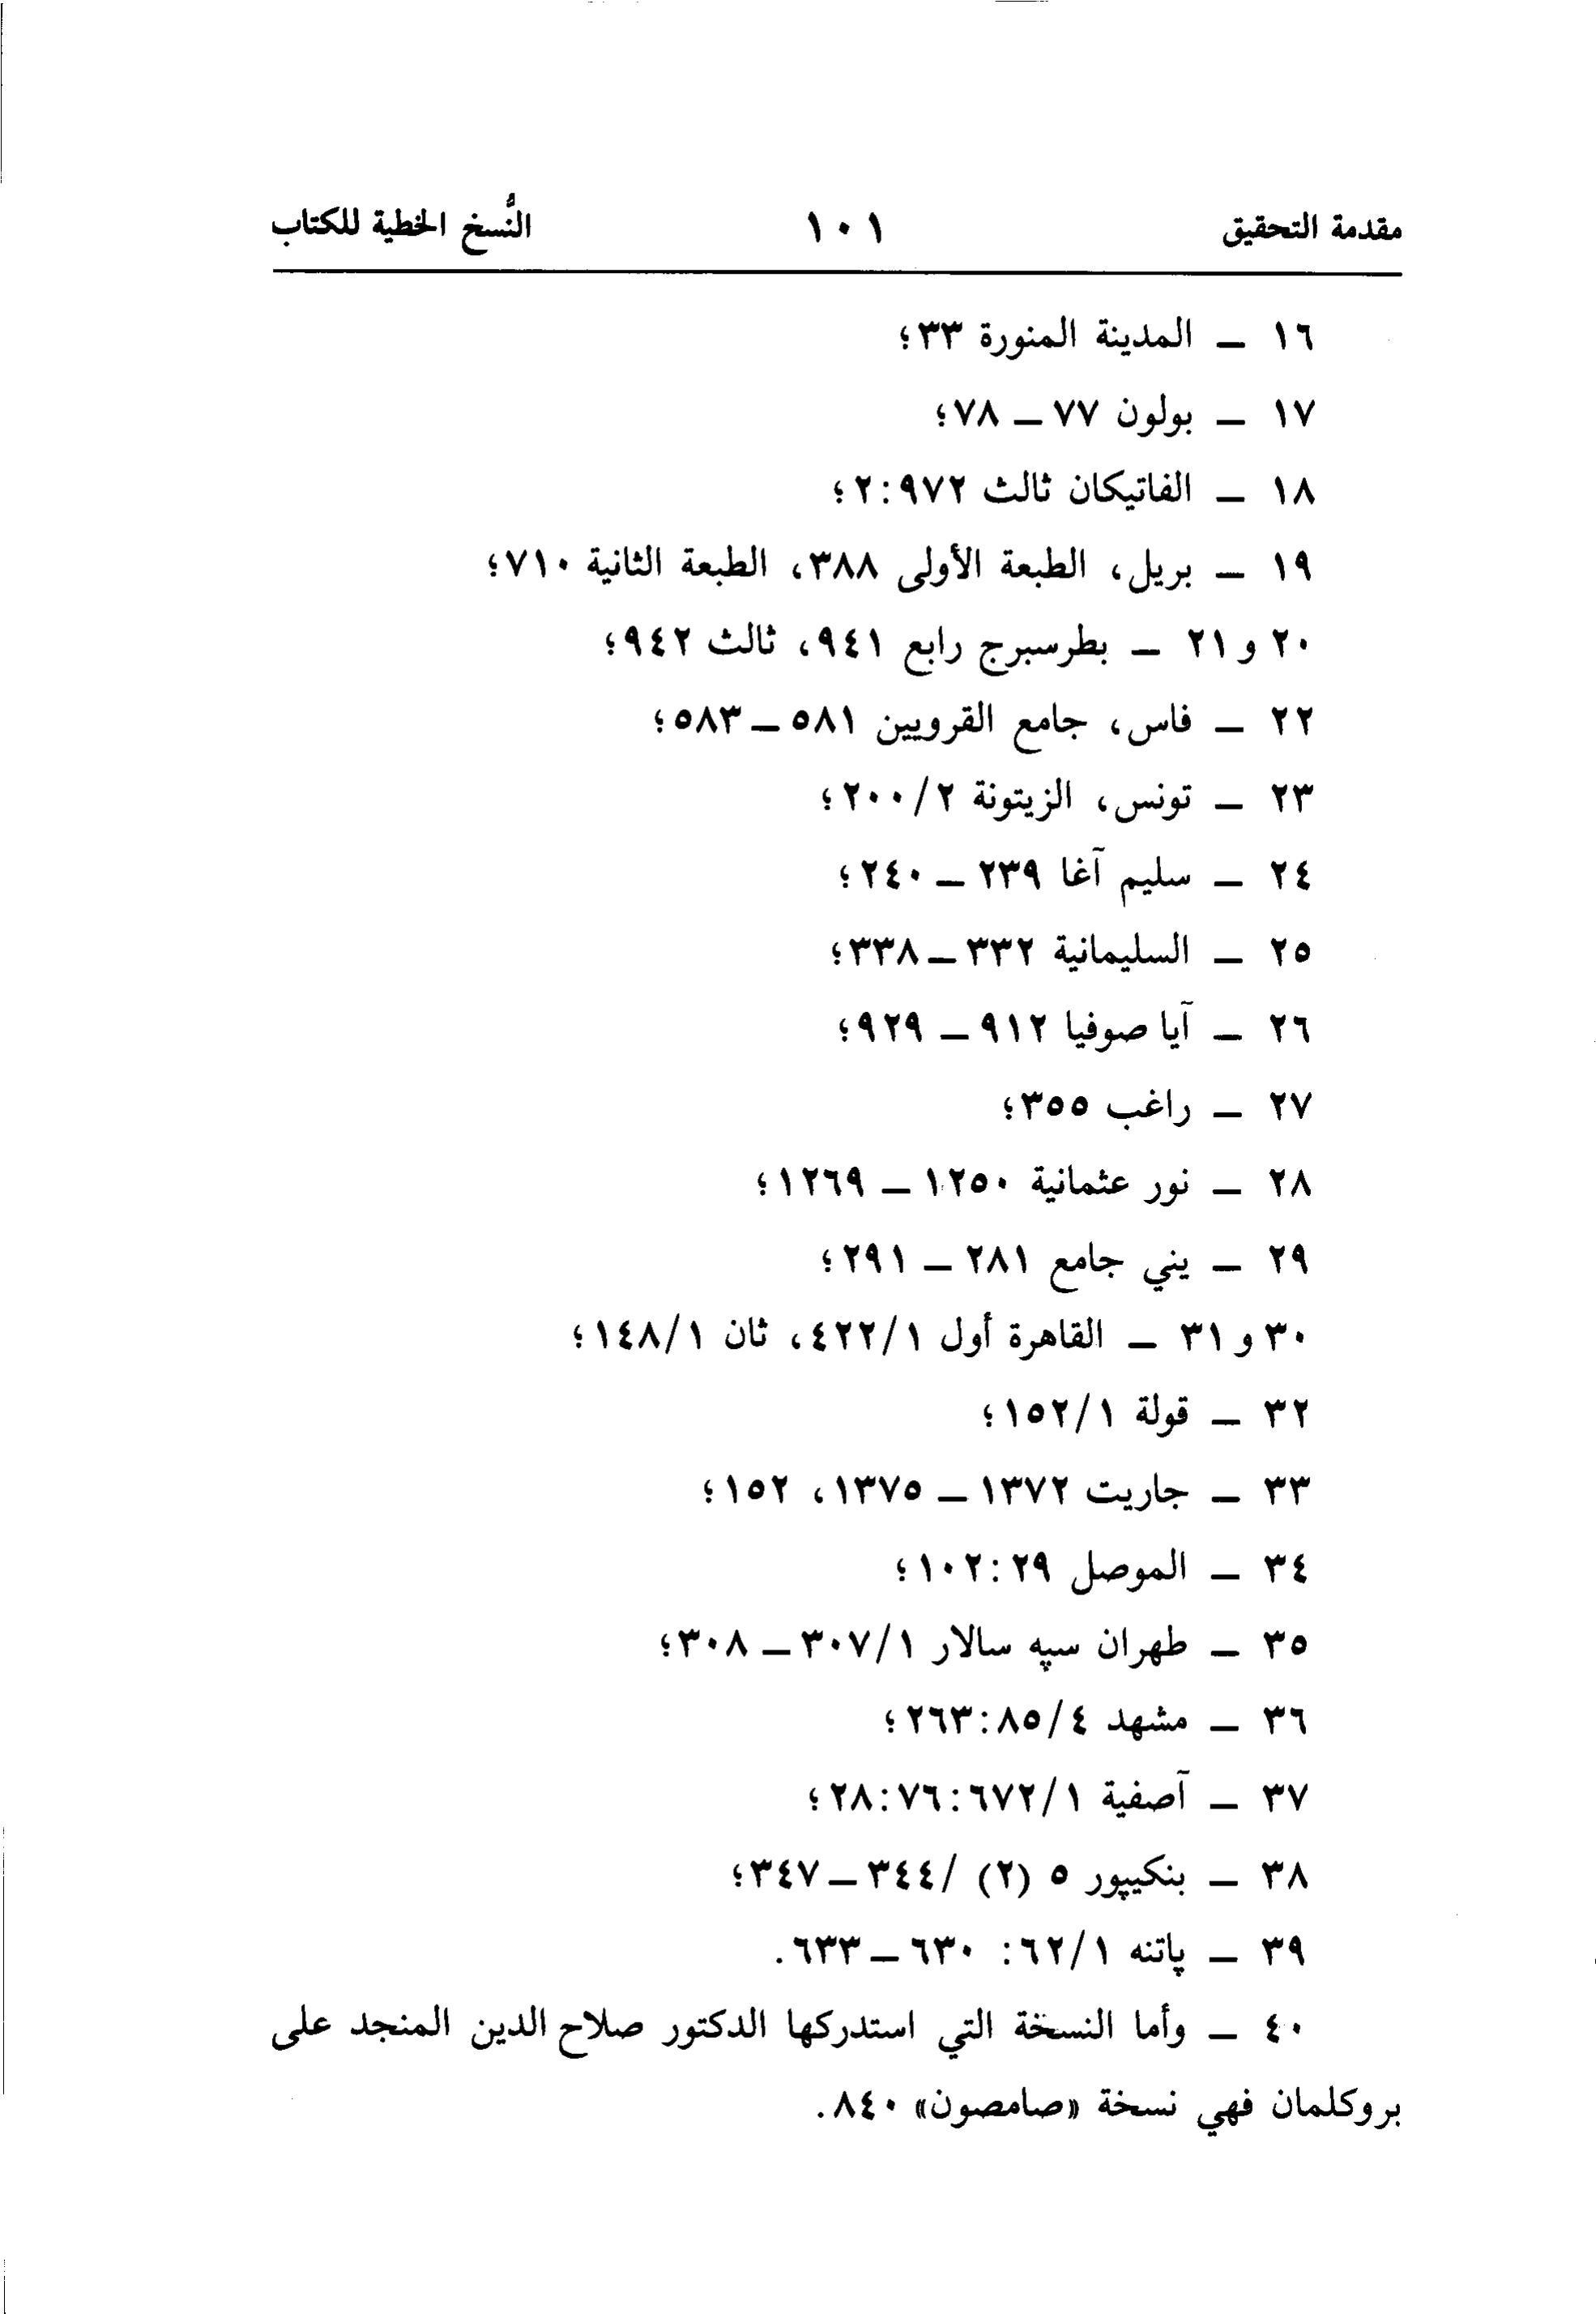 مقدمة التحقيق ١٠١ النُّسخ الخطية للكتاب
١٦ – المدينة المنورة ٣٣؛
١٧ – بولون ٧٧ – ٧٨؛
١٨ – الفاتيكان ثالث ٩٧٢:٢؛
١٩ – بريل، الطبعة الأولى ٣٨٨، الطبعة الثانية ٧١٠؛
٢٠ و ٢١ – بطرسبرج رابع ٩٤١، ثالث ٩٤٢؛
٢٢ – فاس، جامع القرويين ٥٨١ – ٥٨٣؛
٢٣ – تونس، الزيتونة ٢/٢٠٠؛
٢٤ – سليم آغا ٢٣٩ – ٢٤٠؛
٢٥ – السليمانية ٣٣٢ – ٣٣٨؛
٢٦ – آيا صوفيا ٩١٢ – ٩٢٩؛
٢٧ – راغب ٣٥٥؛
٢٨ – نور عثمانية ١٢٥٠ – ١٢٦٩؛
٢٩ – يني جامع ٢٨١ – ٢٩١؛
٣٠ و ٣١ – القاهرة أول ١/٤٢٢، ثان ١/١٤٨؛
٣٢ – قولة ١/١٥٢؛
٣٣ – جاريت ١٣٧٢ – ١٣٧٥، ١٥٢؛
٣٤ – الموصل ٢٩:١٠٢؛
٣٥ – طهران سپه سالار ١/٣٠٧ – ٣٠٨؛
٣٦ – مشهد ٤/٨٥:٢٦٣؛
٣٧ – آصفية ١/٦٧٢:٧٦:٢٨؛
٣٨ – بنكيپور ٥ (٢) /٣٤٤ – ٣٤٧؛
٣٩ – پاتنه ١/٦٢: ٦٣٠ – ٦٣٣.
٤٠ – وأما النسخة التي استدركها الدكتور صلاح الدين المنجد على
بروكلمان فهي نسخة «صامصون» ٨٤٠.